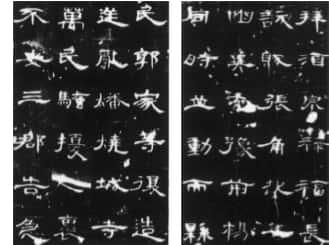 拜酒泉祿福長
訞賊張角起兵
幽冀兖豫荊楊
同時並動而縣
民郭家等復造
逆亂燔燒城寺
萬民騷擾人褱
不安三郡告急